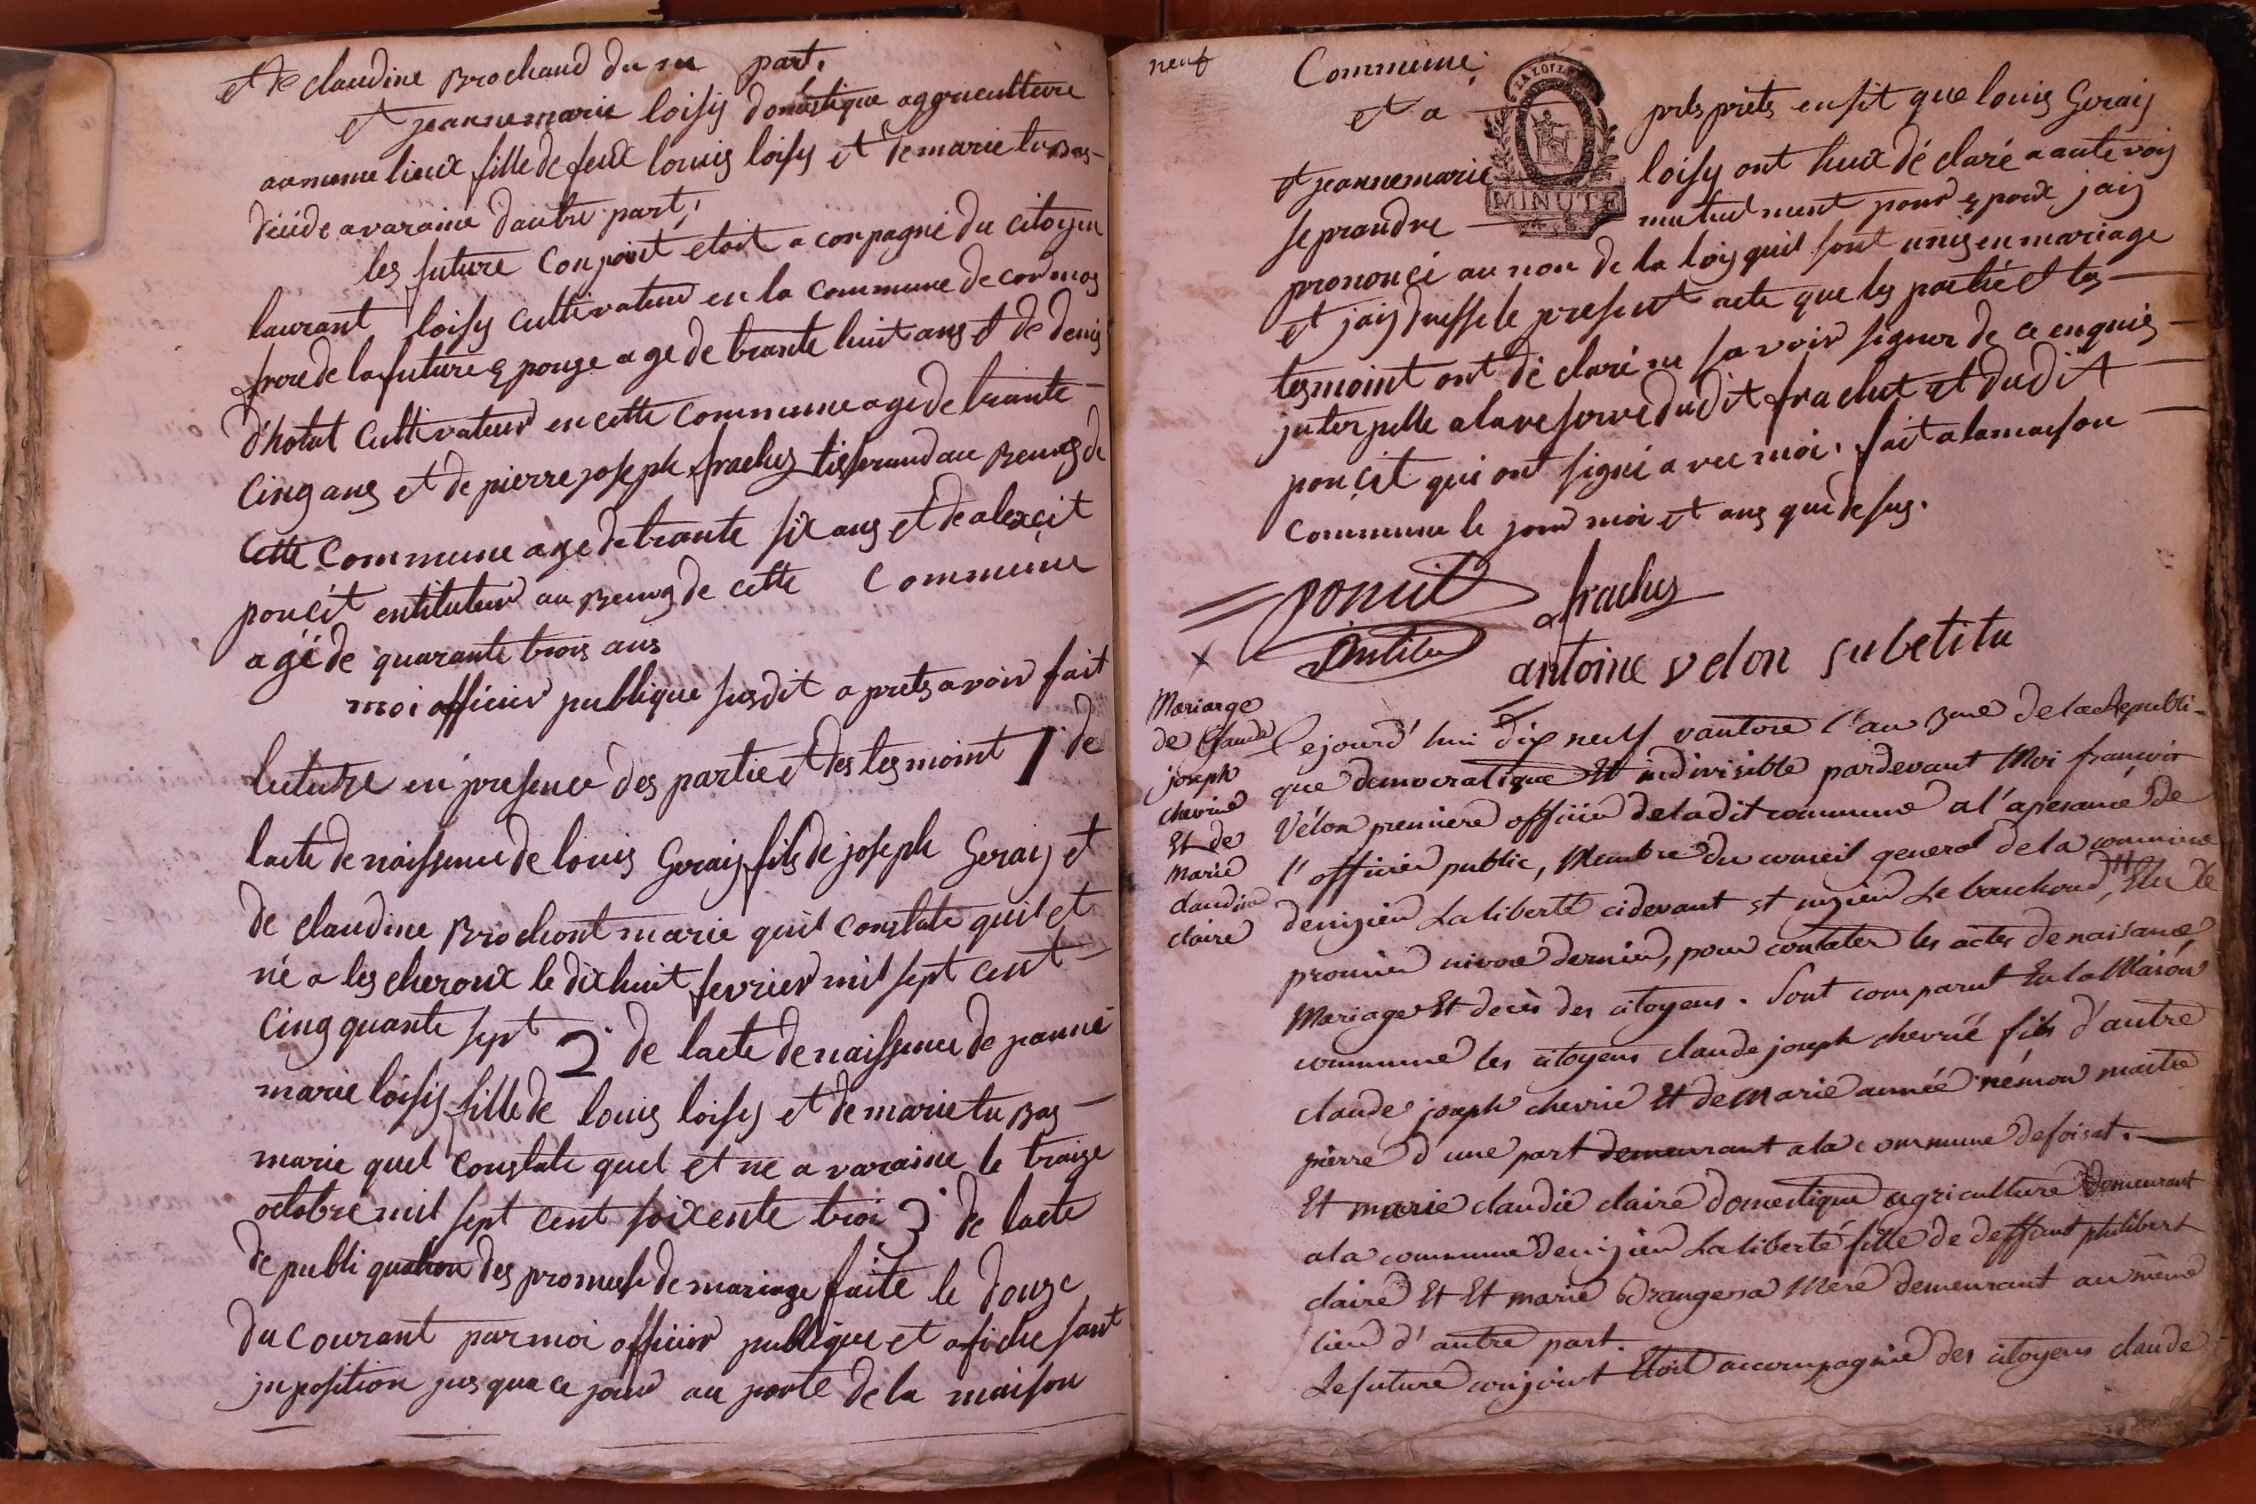 et de claudine Brochaud du ne part.
et jeanne marie loisy domestique aggriculture
au meme lieux fille de feux louis loisy et de marie tu Bas
déüde a varaine dautre part,
les future conjoint etoit a conpagné du citoyen
laurant loisy cultivateur en la commune de cormos
frere de la future epouze age de trante huit ans et de denis
d'hotat cultivateur en cette commune age de trante
cinq ans et de pierre joseph frachez tisserand au Bourg de
cette commune age de trante six ans et de alexcit
poncit entituteur au Bourg de cette commune
agé de quarante trois ans
moi officier publique susdit a prets avoir fait
lecture en presence des partie et des tesmoint 1° de
lacte de naissence de louis Geraij fils de joseph Geraij et
de claudine Brochont marie quil constate quil et
né a les cheroux le dix huit fevrier mil sept cent
cinq quante sept 2° de lacte de naissence de janne
marie loisij fille de louis loisy et de marie tu Bas
marie quel constate quel et ne a varaine le traize
octobre mil sept cent soixente troi 3° de lacte
de publi quation des promesse de mariage faite le douze
du courant par moi officier publique et afiche sant
jnposition jus qua ce jour au porte de la maison
neuf
Commune
et a prets en sit que louis Geraij
et jeanne marie loisy ont heux dé claré a aute voij
se prandre mutuelment pour epoux jaij
prononcé au non de la loij quil sont unis en mariage
et jaij dresse le present acte que les partie et les
tesmoint ont dé claré ne savoir signer de ce enquis
jnterpelle a la reserve dudit frachet et dudit
poncit qui ont signé avec moi. fait a la maison
commune le jour moi et ans que desus.
poncit frachez
Entitu
antoine velon subetitu
Mariarge
de Claude
joseph
chevrie
Et de
Marie
claudine
claire
Cejourd'hui dix neuf vantose l'an 3me de la Republi-
que democratique Et indivisible pardevant Moi francoir
Vélon premiere officier de ladit commune a l'apsance de
l'officier public, Membre du conseil general de la commune
denizien La liberté cidevant st uzien Le bouchoud, Elu le
promier nivose dernier, pour constater les actes de naisance
Mariage Et decès des citoyens. Sont comparut En la Maison
commune les citoyens claude joseph chevrié fils d'autre
claude joseph chevrie Et de Marie année rémon maitre
pierre d'une part demeurant a la commune de foisat.
Et marie claudie claire domestique agriculture Demeurant
a la commune denizien La liberté fille de deffant philibert
claire Et Et marie Brangera Mere demeurant au même
lieu d'autre part.
Le future conjoint Etoit accompagnie des citoyens claude